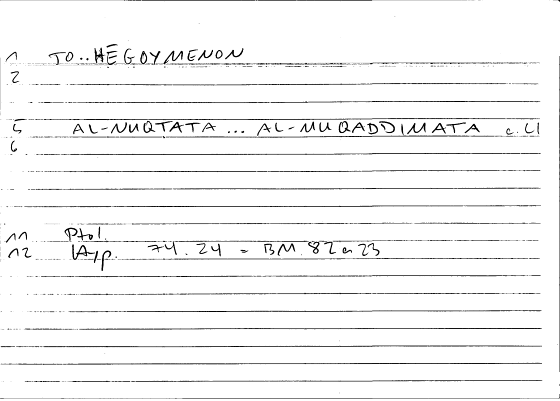 1 TO..HĒGOYMENON
2
5 AL-NUQTATA ... AL-MUQADDIMATA
6
11 Ptol.
12 74.24 = BM 82a23